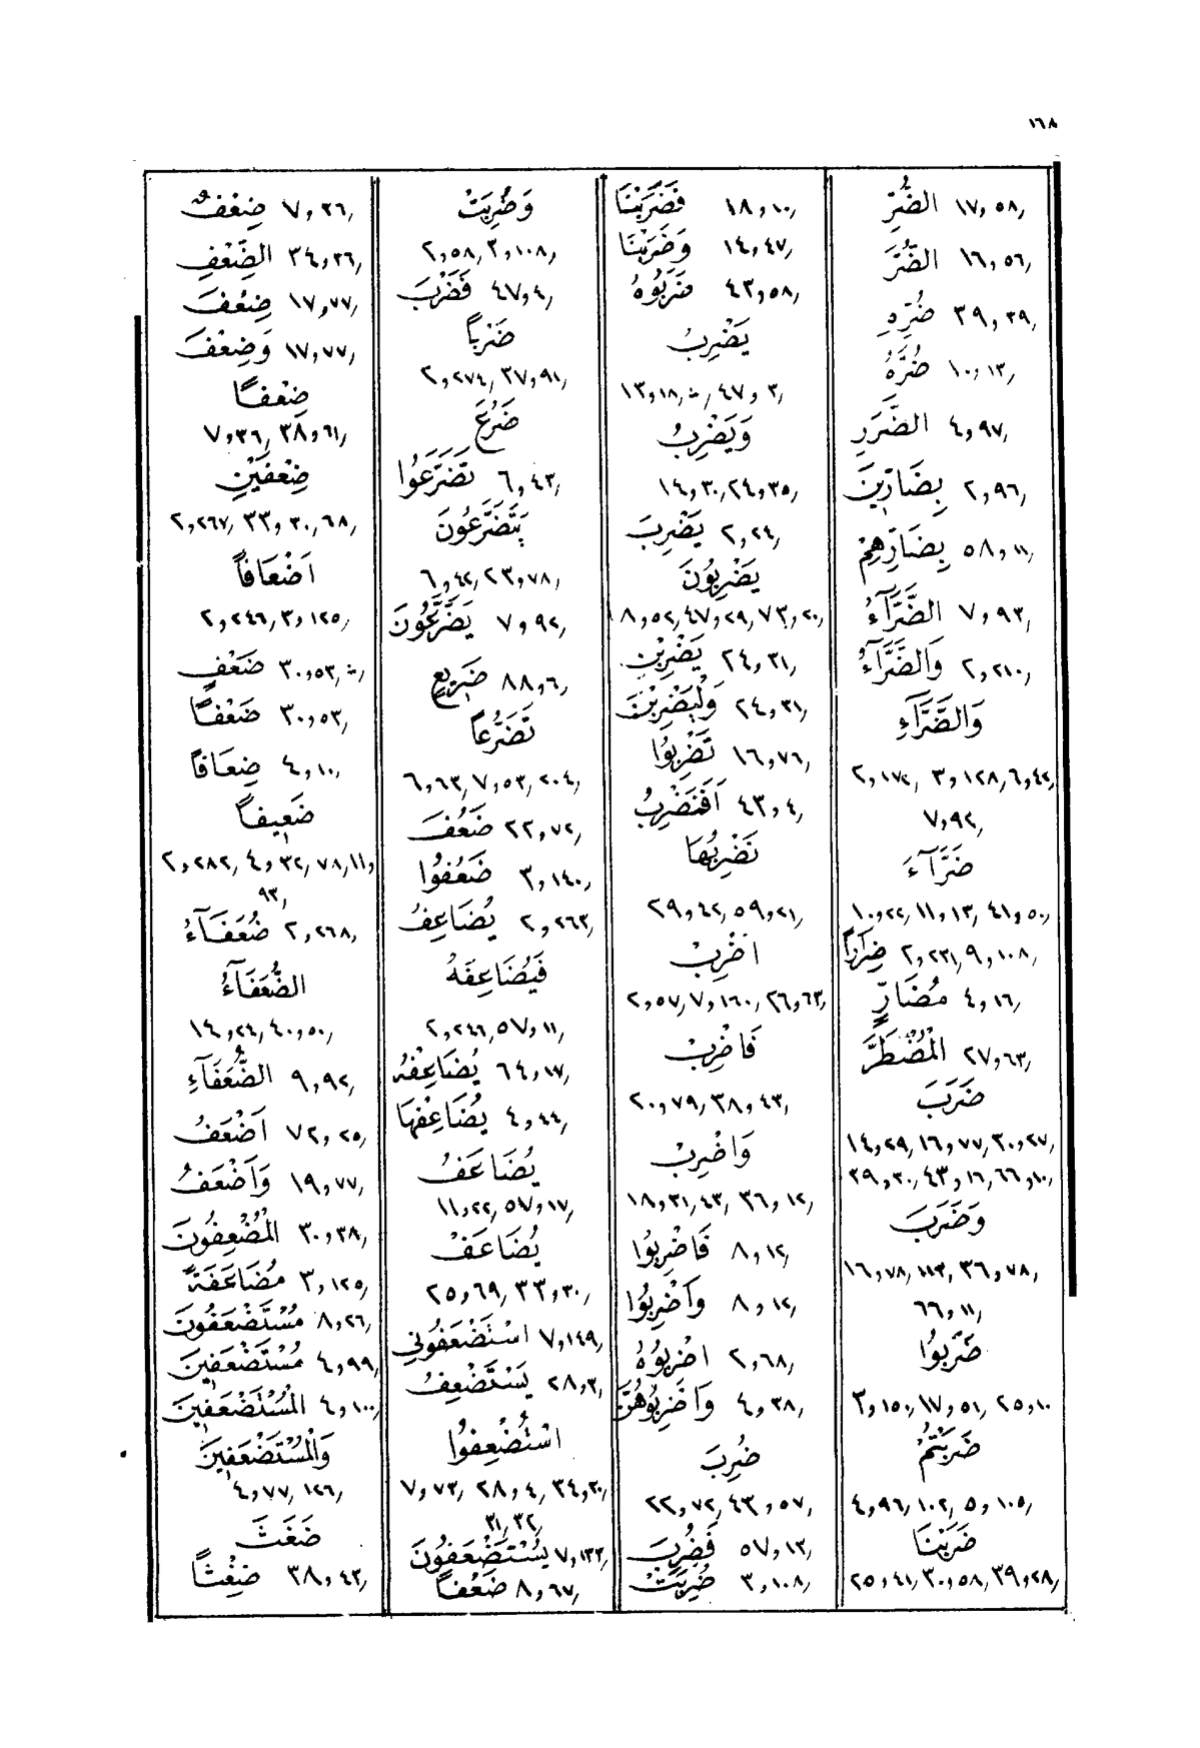 ١٦٨
الضُّرِّ ١٧,٥٨٫
الضُّرَّ ١٦,٥٦٫
ضُرِّهِ ٣٩,٣٩٫
ضُرَّهُ ١٠,١٣٫
الضَّرَرِ ٤,٩٧٫
بِضَارِّينَ ٢,٩٦٫
بِضَارِّهِمْ ٥٨,١١٫
الضَّرَّآءُ ٧,٩٣٫
وَالضَّرَّآءُ ٢,٢١٠٫
وَالضَّرَّآءِ
٢,١٧٢٫ ٣,١٢٨٫ ٦,٤٢٫
٧,٩٢٫
ضَرَّآءَ
١٠,٢٢٫ ١١,١٣٫ ٤١,٥٠٫
ضِرَارًا ٢,٢٣١٫ ٩,١٠٨٫
مُضَارٍّ ٤,١٦٫
الْمُضْطَرَّ ٢٧,٦٣٫
ضَرَبَ
١٤,٢٩٫ ١٦,٧٧٫ ٣٠,٢٧٫
٣٩,٣٠٫ ٤٣,١٦٫ ٦٦,١٠٫
وَضَرَبَ
١٦,٧٨٫ ١١٣٫ ٣٦,٧٨٫
٦٦,١١٫
ضَرَبُوا
٣,١٥٠٫ ١٧,٥١٫ ٢٥,١٠
ضَرَبْتُمْ
٤,٩٦٫ ١٠٢٫ ٥,١٠٥٫
ضَرَبْنَا
٢٥,٤١٫ ٣٠,٥٨٫ ٣٩,٢٨٫
فَضَرَبْنَا ١٨,١٠٫
وَضَرَبْنَا ١٤,٤٧٫
ضَرَبُوهُ ٤٣,٥٨٫
يَضْرِبُ
١٣,١٨٫ ث٫ ٤٧,٣٫
وَيَضْرِبُ
١٤,٣٠٫ ٢٤,٣٥٫
يَضْرِبَ ٢,٢٤٫
يَضْرِبُونَ
٨,٥٢٫ ٤٧,٢٩٫ ٧٣,٢٠٫
يَضْرِبْنَ ٢٤,٣١٫
وَلْيَضْرِبْنَ ٢٤,٣١٫
تَضْرِبُوا ١٦,٧٦٫
اَفَنَضْرِبُ ٤٣,٤٫
نَضْرِبُهَا
٢٩,٤٢٫ ٥٩,٢١٫
اضْرِبْ
٢,٥٧٫ ٧,١٦٠٫ ٢٦,٦٣٫
فَاضْرِبْ
٢٠,٧٩٫ ٣٨,٤٣٫
وَاضْرِبْ
١٨,٣١٫ ٤٣٫ ٣٦,١٢٫
فَاضْرِبُوا ٨,١٢٫
وَاضْرِبُوا ٨,١٢٫
اضْرِبُوهُ ٢,٦٨٫
وَاضْرِبُوهُنَّ ٤,٣٨٫
ضُرِبَ
٢٢,٧٢٫ ٤٣,٥٧٫
فَضُرِبَ ٥٧,١٣٫
ضُرِبَتْ ٣,١٠٨٫
وَضُرِبَتْ
٢,٥٨٫ ٣,١٠٨٫
فَضَرْبَ ٤٧,٤٫
ضَرْبًا
٢,٢٧٤٫ ٣٧,٩١٫
ضَرَعَ
تَضَرَّعُوا ٦,٤٣٫
يَتَضَرَّعُونَ
٦,٤٢٫ ٢٣,٧٨٫
يَضَّرَّعُونَ ٧,٩٢٫
ضَرِيعٍ ٨٨,٦٫
تَضَرُّعًا
٦,٦٣٫ ٧,٥٣٫ ٢٠٤٫
ضَعُفَ ٢٢,٧٢٫
ضَعُفُوا ٣,١٤٠٫
يُضَاعِفُ ٢,٢٦٣٫
فَيُضَاعِفَهُ
٢,٢٤٦٫ ٥٧,١١٫
يُضَاعِفْهُ ٦٤,١٧٫
يُضَاعِفْهَا ٤,٤٤٫
يُضَاعَفُ
١١,٢٢٫ ٥٧,١٧٫
يُضَاعَفْ
٢٥,٦٩٫ ٣٣,٣٠٫
اسْتَضْعَفُونِي ٧,١٤٩٫
يَسْتَضْعِفُ ٢٨,٣٫
اسْتُضْعِفُوا
٧,٧٣٫ ٢٨,٤٫ ٣٤,٣٠٫
٣١٫ ٣٢٫
يُسْتَضْعَفُونَ ٧,١٣٣٫
ضَعْفًا ٨,٦٧٫
ضِعْفٌ ٧,٣٦٫
الضِّعْفِ ٣٤,٣٦٫
ضِعْفَ ١٧,٧٧٫
وَضِعْفَ ١٧,٧٧٫
ضِعْفًا
٧,٣٦٫ ٣٨,٦١٫
ضِعْفَيْنِ
٢,٢٦٧٫ ٣٣,٣٠٫ ٦٨٫
اَضْعَافًا
٢,٢٤٦٫ ٣,١٢٥٫
ضَعْفٍ ٣٠,٥٣٫ ث٫
ضَعْفًا ٣٠,٥٣٫
ضِعَافًا ٤,١٠٫
ضَعِيفًا
٢,٢٨٢٫ ٤,٣٢٫ ٧٨٫ ١١,
٩٣٫
ضُعَفَآءُ ٢,٢٦٨٫
الضُّعَفَآءُ
١٤,٢٤٫ ٤٠,٥٠٫
الضُّعَفَآءِ ٩,٩٢٫
اَضْعَفُ ٧٢,٢٥٫
وَاَضْعَفُ ١٩,٧٧٫
الْمُضْعِفُونَ ٣٠,٣٨٫
مُضَاعَفَةً ٣,١٢٥٫
مُسْتَضْعَفُونَ ٨,٢٦٫
مُسْتَضْعَفِينَ ٤,٩٩٫
الْمُسْتَضْعَفِينَ ٤,١٠٠٫
وَالْمُسْتَضْعَفِينَ
٤,٧٧٫ ١٢٦٫
ضَغَثَ
ضِغْثًا ٣٨,٤٣٫